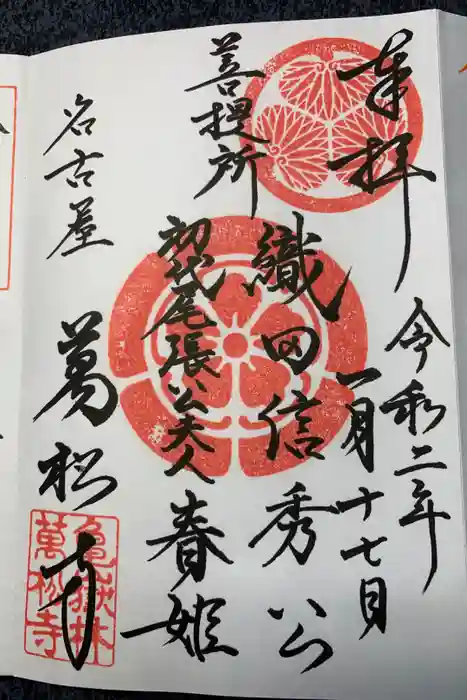 奉拝
令和二年
一月十七日
菩提所
織田信秀公
初代尾張公夫人
春姫
名古屋
萬松寺
亀嶽林
萬松寺